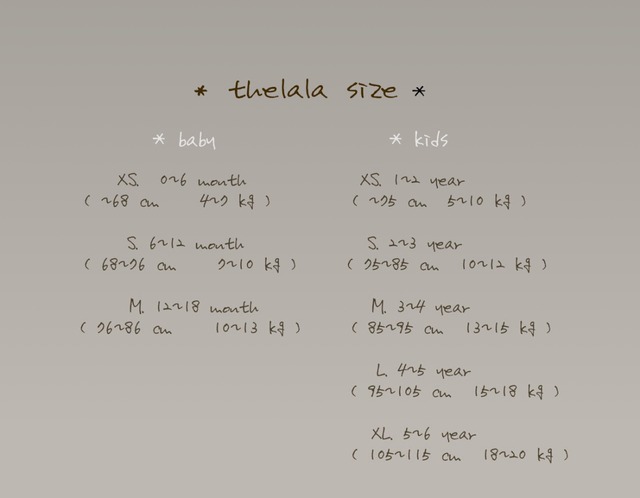 * thelala size *
* baby
XS. 0~6 month
( ~68 cm 4~7 kg )
S. 6~12 month
( 68~76 cm 7~10 kg )
M. 12~18 month
( 76~86 cm 10~13 kg )
* kids
XS. 1~2 year
( ~75 cm 5~10 kg )
S. 2~3 year
( 75~85 cm 10~12 kg )
M. 3~4 year
( 85~95 cm 13~15 kg )
L. 4~5 year
( 95~105 cm 15~18 kg )
XL. 5~6 year
( 105~115 cm 18~20 kg )